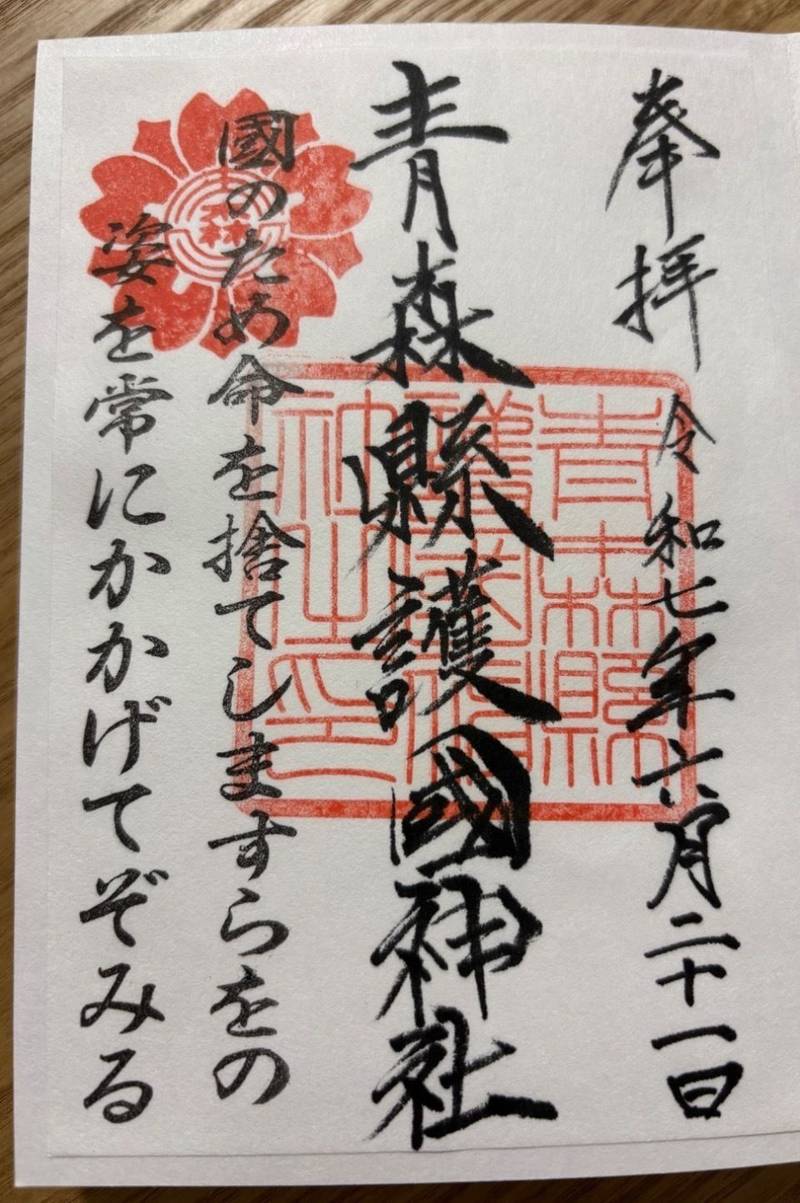 奉拝
令和七年六月二十一日
青森縣護國神社
國のため命を捨てしますらをの
姿を常にかかげてぞみる
青森縣
護國神
社之印
青森